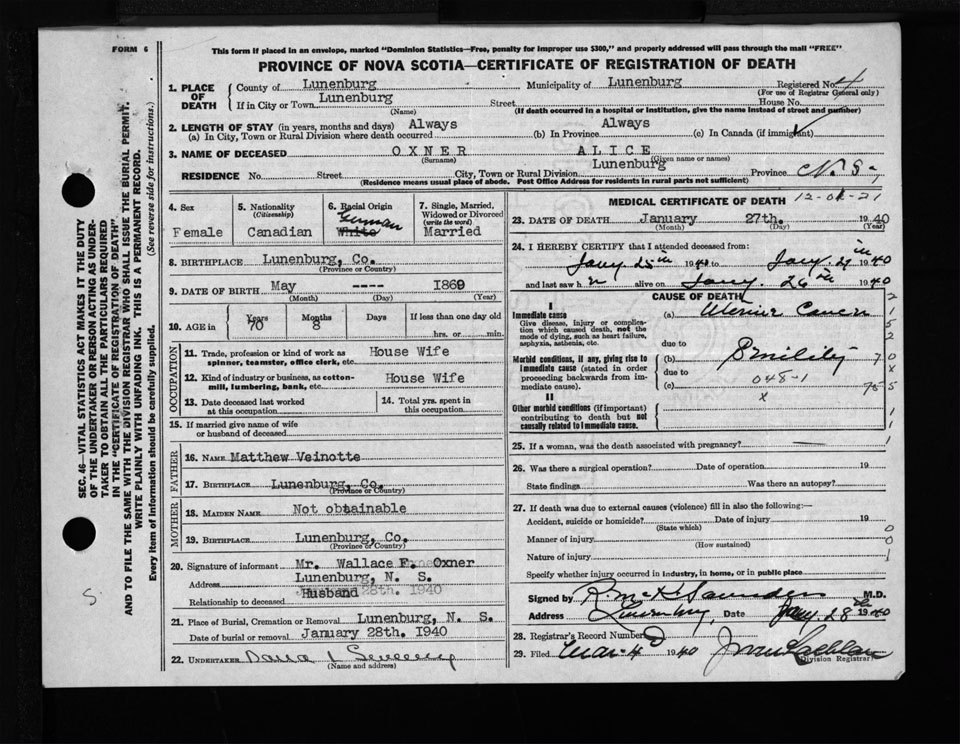 FORM 6
This form if placed in an envelope, marked "Dominion Statistics—Free, penalty for improper use $300," and properly addressed will pass through the mail "FREE"
PROVINCE OF NOVA SCOTIA—CERTIFICATE OF REGISTRATION OF DEATH
1. PLACE OF DEATH
County of Lunenburg Municipality of Lunenburg Registered No. 4
(For use of Registrar General only)
If in City or Town Lunenburg Street House No.
(Name) (If death occurred in a hospital or institution, give the name instead of street and number)
2. LENGTH OF STAY (in years, months and days) Always Always
(a) In City, Town or Rural Division where death occurred (b) In Province (c) In Canada (if immigrant)
3. NAME OF DECEASED OXNER ALICE
(Surname) (Given name or names)
RESIDENCE No. Street City, Town or Rural Division Lunenburg Province N.S.
(Residence means usual place of abode. Post Office Address for residents in rural parts not sufficient)
4. Sex 5. Nationality (Citizenship) 6. Racial Origin 7. Single, Married, Widowed or Divorced (write the word)
Female Canadian White German Married
8. BIRTHPLACE Lunenburg, Co.
(Province or Country)
9. DATE OF BIRTH May ---- 1869
(Month) (Day) (Year)
10. AGE in Years Months Days If less than one day old
70 8 hrs. or min.
OCCUPATION
11. Trade, profession or kind of work as spinner, teamster, office clerk, etc. House Wife
12. Kind of industry or business, as cotton-mill, lumbering, bank, etc. House Wife
13. Date deceased last worked at this occupation
14. Total yrs. spent in this occupation
15. If married give name of wife or husband of deceased
FATHER
16. NAME Matthew Veinotte
17. BIRTHPLACE Lunenburg, Co.
(Province or Country)
MOTHER
18. MAIDEN NAME Not obtainable
19. BIRTHPLACE Lunenburg, Co.
(Province or Country)
20. Signature of informant Mr. Wallace F. Oxner
Address Lunenburg, N. S.
Relationship to deceased Husband
21. Place of Burial, Cremation or Removal Lunenburg, N. S.
Date of burial or removal January 28th. 1940
22. UNDERTAKER
(Name and address)
MEDICAL CERTIFICATE OF DEATH
12-01-21
23. DATE OF DEATH January 27th. 1940
(Month) (Day) (Year)
24. I HEREBY CERTIFY that I attended deceased from:
Jany 25th 1940 to Jany. 27th 1940
and last saw her alive on Jany. 26th 1940
CAUSE OF DEATH
I
Immediate cause (a) Uterine Cancer
Give disease, injury or complication which caused death, not the mode of dying, such as heart failure, asphyxia, asthenia, etc.
due to
Morbid conditions, if any, giving rise to immediate cause (stated in order proceeding backwards from immediate cause).
(b) Senility
due to
(c) 048-1
x
II
Other morbid conditions (if important) contributing to death but not causally related to immediate cause.
25. If a woman, was the death associated with pregnancy?
26. Was there a surgical operation? Date of operation 19
State findings Was there an autopsy?
27. If death was due to external causes (violence) fill in also the following:—
Accident, suicide or homicide? Date of injury 19
(State which)
Manner of injury
(How sustained)
Nature of injury
Specify whether injury occurred in industry, in home, or in public place
Signed by R. McK. Saunders M.D.
Address Lunenburg Date Jany. 28th 1940
28. Registrar's Record Number
29. Filed Mar. 4 1940
Division Registrar
SEC. 46—VITAL STATISTICS ACT MAKES IT THE DUTY
OF THE UNDERTAKER OR PERSON ACTING AS UNDER-
TAKER TO OBTAIN ALL THE PARTICULARS REQUIRED
IN THE "CERTIFICATE OF REGISTRATION OF DEATH",
AND TO FILE THE SAME WITH THE DIVISION REGISTRAR WHO SHALL ISSUE THE BURIAL PERMIT.
WRITE PLAINLY WITH UNFADING INK. THIS IS A PERMANENT RECORD.
Every item of information should be carefully supplied. (See reverse side for instructions.)